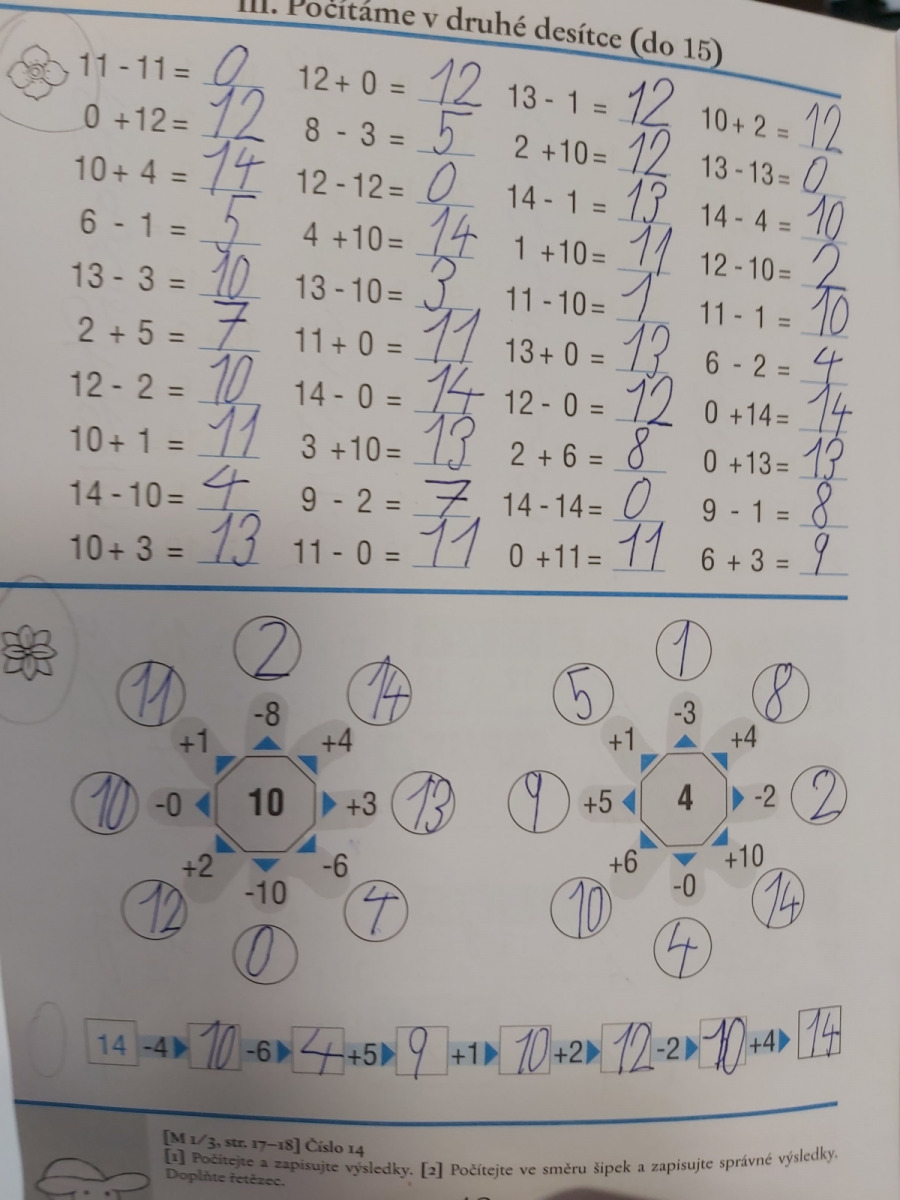 III. Počítáme v druhé desítce (do 15)
11 - 11 = 0 12 + 0 = 12 13 - 1 = 12 10 + 2 = 12
0 + 12 = 12 8 - 3 = 5 2 + 10 = 12 13 - 13 = 0
10 + 4 = 14 12 - 12 = 0 14 - 1 = 13 14 - 4 = 10
6 - 1 = 5 4 + 10 = 14 1 + 10 = 11 12 - 10 = 2
13 - 3 = 10 13 - 10 = 3 11 - 10 = 1 11 - 1 = 10
2 + 5 = 7 11 + 0 = 11 13 + 0 = 13 6 - 2 = 4
12 - 2 = 10 14 - 0 = 14 12 - 0 = 12 0 + 14 = 14
10 + 1 = 11 3 + 10 = 13 2 + 6 = 8 0 + 13 = 13
14 - 10 = 4 9 - 2 = 7 14 - 14 = 0 9 - 1 = 8
10 + 3 = 13 11 - 0 = 11 0 + 11 = 11 6 + 3 = 9
2 1
11 14 5 8
-8 -3
+1 +4 +1 +4
10 -0 10 +3 13 9 +5 4 -2 2
+2 -6 +6 +10
-10 -0
12 4 10 14
0 4
14 -4 10 -6 4 +5 9 +1 10 +2 12 -2 10 +4 14
[M 1/3, str. 17–18] Číslo 14
[1] Počítejte a zapisujte výsledky. [2] Počítejte ve směru šipek a zapisujte správné výsledky.
Doplňte řetězec.